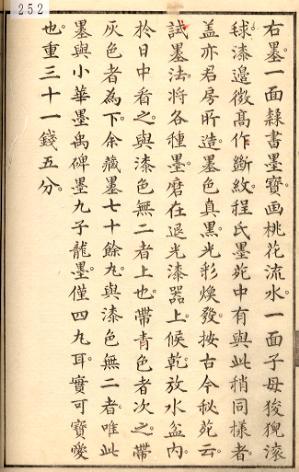 252
右墨一面隸書墨寶画桃花流水一面子母狻猊滚
毬漆邊微高作斷紋程氏墨苑中有與此稍同樣者
盖亦君房所造墨色真黒光彩煥發按古今秘苑云
試墨法將各種墨磨在退光漆器上候乾放水盆内
於日中看之與漆色無二者上也帶青色者次之帶
灰色者為下余藏墨七十餘九與漆色無二者唯此
墨與小華墨禹碑墨九子龍墨僅四九耳實可寶愛
也重三十一錢五分